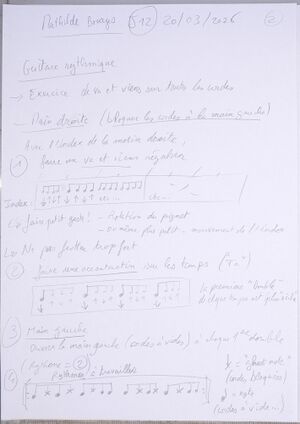 Mathilde Bruys S12 20/03/2026 ②
Guitare rythmique
→ Exercice de va et viens sur toutes les cordes
— Main droite (bloquer les cordes à la main gauche)
Avec l'index de la main droite,
① faire un va et viens régulier
Index: ↓↑↓↑ ↓↑↓↑ etc... etc...
↳ faire petit geste! - rotation du poignet
- ou même plus petit - mouvement de l'index
↳ Ne pas frotter trop fort
② faire une accentuation sur les temps ("Ta")
↓↑↓↑
la première "double"
de chaque temps est plus
③ Main gauche
Ouvrir la main gauche (cordes à vides) à chaque 1ère double
(Rythme = ②)
Rythmes à travailler
= "ghost note"
(cordes bloquées)
= note
(cordes à vide...)